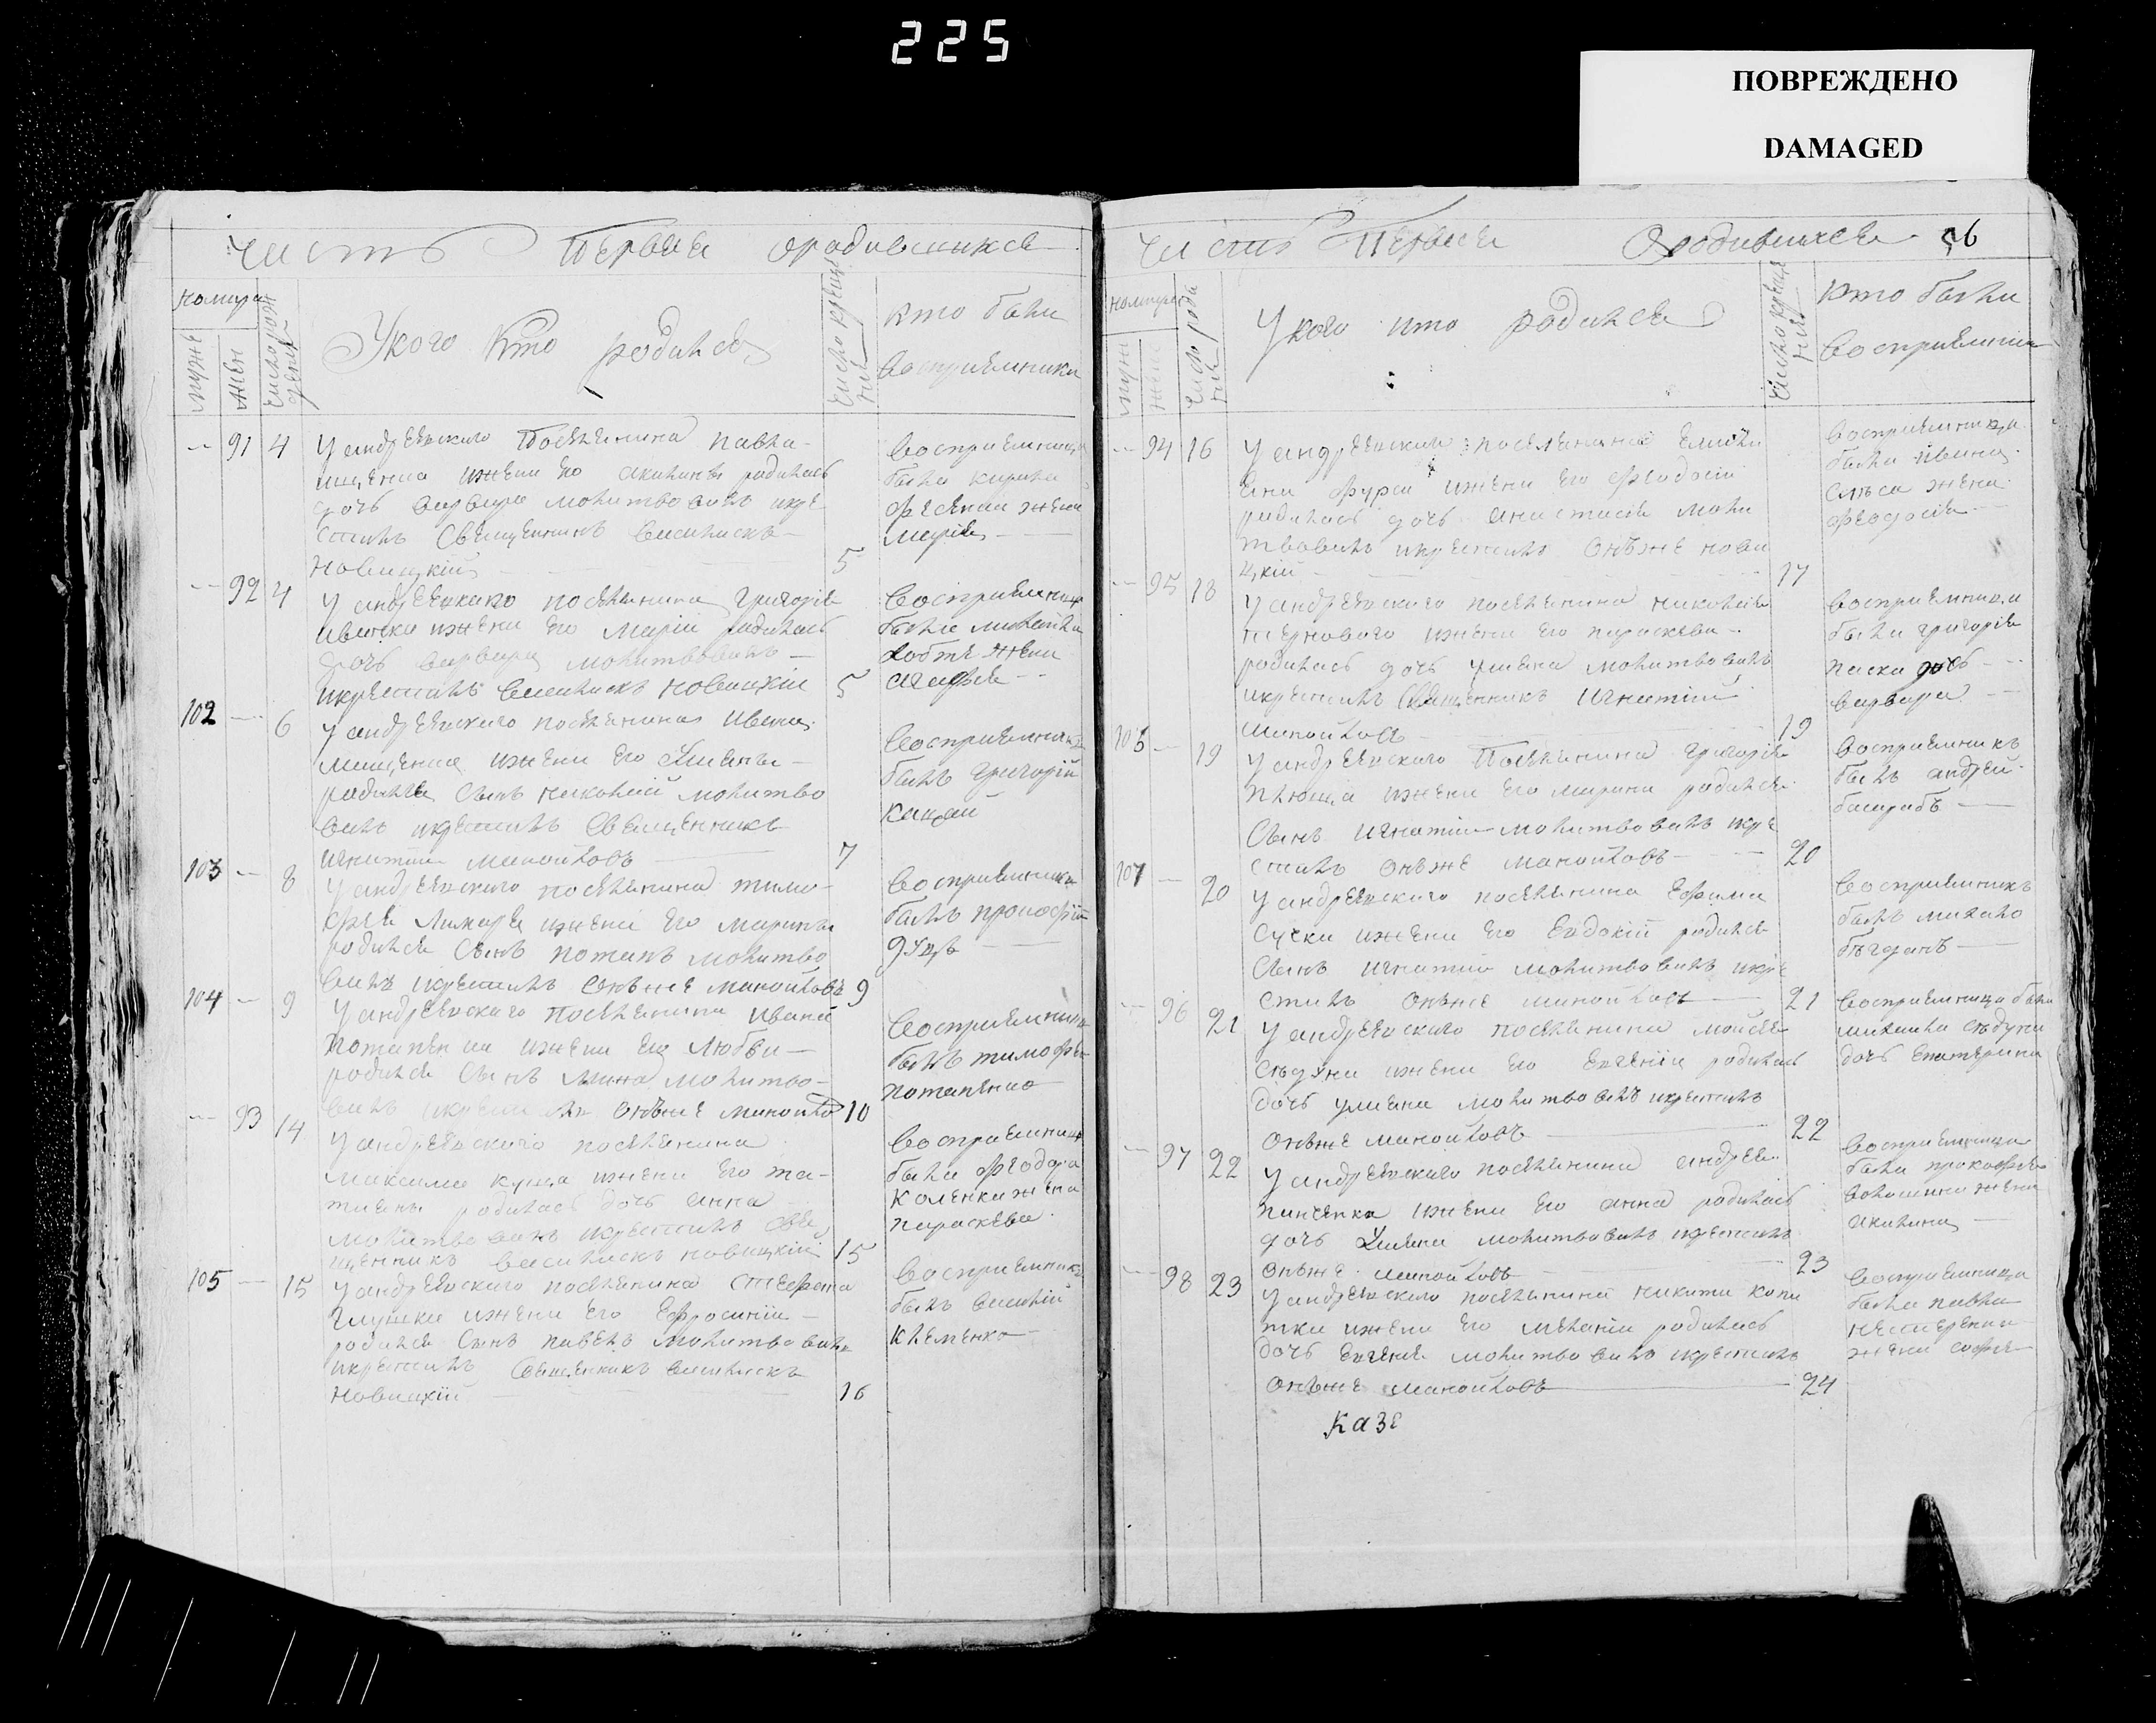 225
ПОВРЕЖДЕНО
DAMAGED
часть Первая ородившихся
номера
муже
жен
число рож
дения
Укого Кто родился
число креще
ния
кто были
восприемники
-- 91 4 У андреевского Поселенина павла
ищенка ижени его акилины родилась
дочь варвара молитвовалъ икре
стилъ Священникъ василискъ
Новицкий 5
восприемница
была кирила
жена
мария
-- 92 4 У андреевского поселенина григория
ивашка ижени его марии родилась
дочь варвара молитвовалъ
икрестилъ василискъ новицкии 5
восприемница
была михайла
жена
агафия
102 -- 6 У андреевского поселенина ивана
ижени его Улияны
родился сынъ николай молитво
валъ икрестилъ священникъ
игнатии манойловъ 7
восприемникъ
былъ григорий
кацай
103 -- 8 У андреевского поселенина тимо
фея лимаря ижени его марины
родился сынъ потапъ молитво
валъ икрестилъ онъже манойловъ 9
восприемникъ
былъ прокофий
104 -- 9 У андреевского поселенина ивана
потапенка ижени его любви
родился сынъ мина молитво
валъ икрестилъ онъже манойло 10
восприемникъ
былъ тимофей
потапенко
-- 93 14 У андреевского поселенина
максима куща ижени его та
тияны родилась дочь анна
молитвовалъ икрестилъ свя
щенникъ василискъ новицкий 15
восприемница
была феодора
коленка жена
параскева
105 -- 15 У андреевского поселенина стефана
глушка ижени его Ефросинии
родился сынъ павелъ молитвовалъ
икрестилъ священникъ василискъ
новицкий 16
восприемникъ
былъ василий
клеменко
часть Первая Ородившихся
номера
муж
жен
число рожде
ния
У кого кто родился
число креще
ния
кто были
восприемники
-- 94 16 У андреевскаго поселенина Емиля
на фурса ижени его феодосии
родилась дочь анастасия моли
твовалъ икрестилъ онъже нови
цкий 17
восприемница
была ивана
жена
феодосия
-- 95 18 У андреевского поселенина николая
тернового ижени его параскева
родилась дочь улияна молитвовалъ
икрестилъ священникъ игнатий
манойловъ 19
восприемница
была григория
паска дочь
варвара
106 -- 19 У андреевского Поселенина григория
плюща ижени его марины родился
сынъ игнатии молитвовалъ икре
стилъ онъже манойловъ 20
восприемникъ
былъ андрей
107 -- 20 У андреевского поселенина Ефима
сучки ижени его Евдокий родился
сынъ игнатий молитвовалъ икре
стилъ онъже манойловъ 21
восприемникъ
былъ михайло
-- 96 21 У андреевского поселенина мойсея
сьдуна ижени его Евгения родилась
дочь улияна молитвовалъ икрестилъ
онъже манойловъ 22
восприемница была
михаила сьдуна
дочь Екатерина
-- 97 22 У андреевского поселенина андрея
панченка ижени его анна родилась
дочь Улияна молитвовалъ икрестилъ
онъже манойловъ 23
восприемница
была прокофия
волошина жена
акилина
-- 98 23 У андреевского поселенина никити копи
тки ижени его мелании родилась
дочь Евгения молитвовалъ икрестилъ
онъже манойловъ 24
восприемница
была павла
нестеренка
жена софия
казе